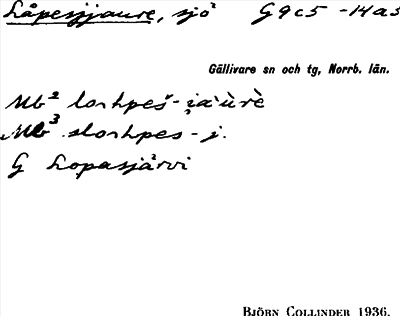 Låpesjjaure, sjö G9c5 - 14a5
Gällivare sn och tg, Norrb. län.
Mb² lorhpeš - i̯a'ùrè
Mb³ slorhpes - j.
G Lopasjärvi
BJÖRN COLLINDER 1936.